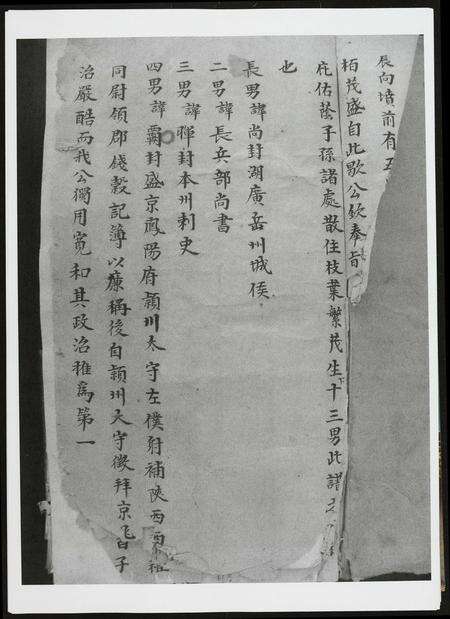 辰向墳前有五
栢茂盛自此歇公欽奉旨
庇佑蔭子孫諸處散住枝葉繁茂生下十三男此譜
也
長男諱尚封湖廣岳州城侯
二男諱長兵部尚書
三男諱揮封本州刺史
四男諱霸封盛京鳳陽府穎川太守左僕射補陝西西
同尉領郡錢穀記簿以廉稱後自穎州大守徵拜京兆尹子
治嚴酷而我公獨用寬和其政治雅為第一